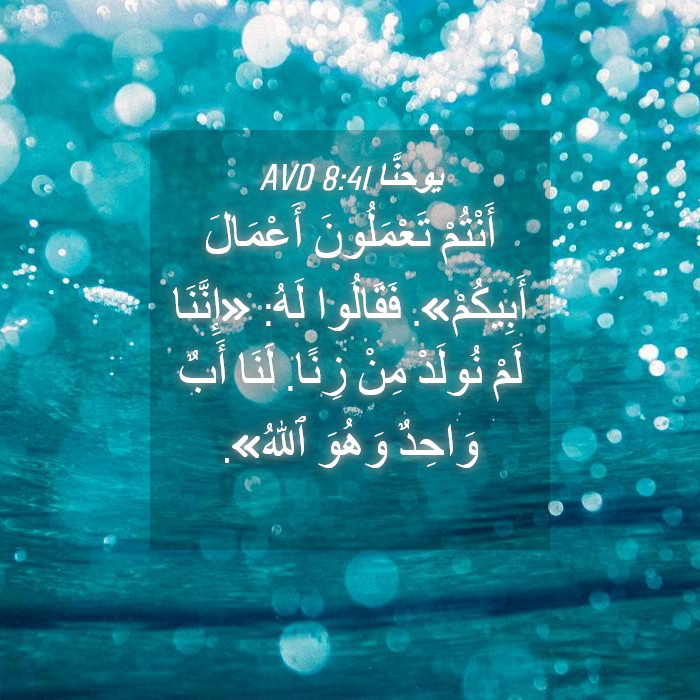 يوحنَّا 8:41 AVD
أَنْتُمْ تَعْمَلُونَ أَعْمَالَ
أَبِيكُمْ». فَقَالُوا لَهُ: «إِنَّنَا
لَمْ نُولَدْ مِنْ زِنًا. لَنَا أَبٌ
وَاحِدٌ وَهُوَ ٱللهُ».